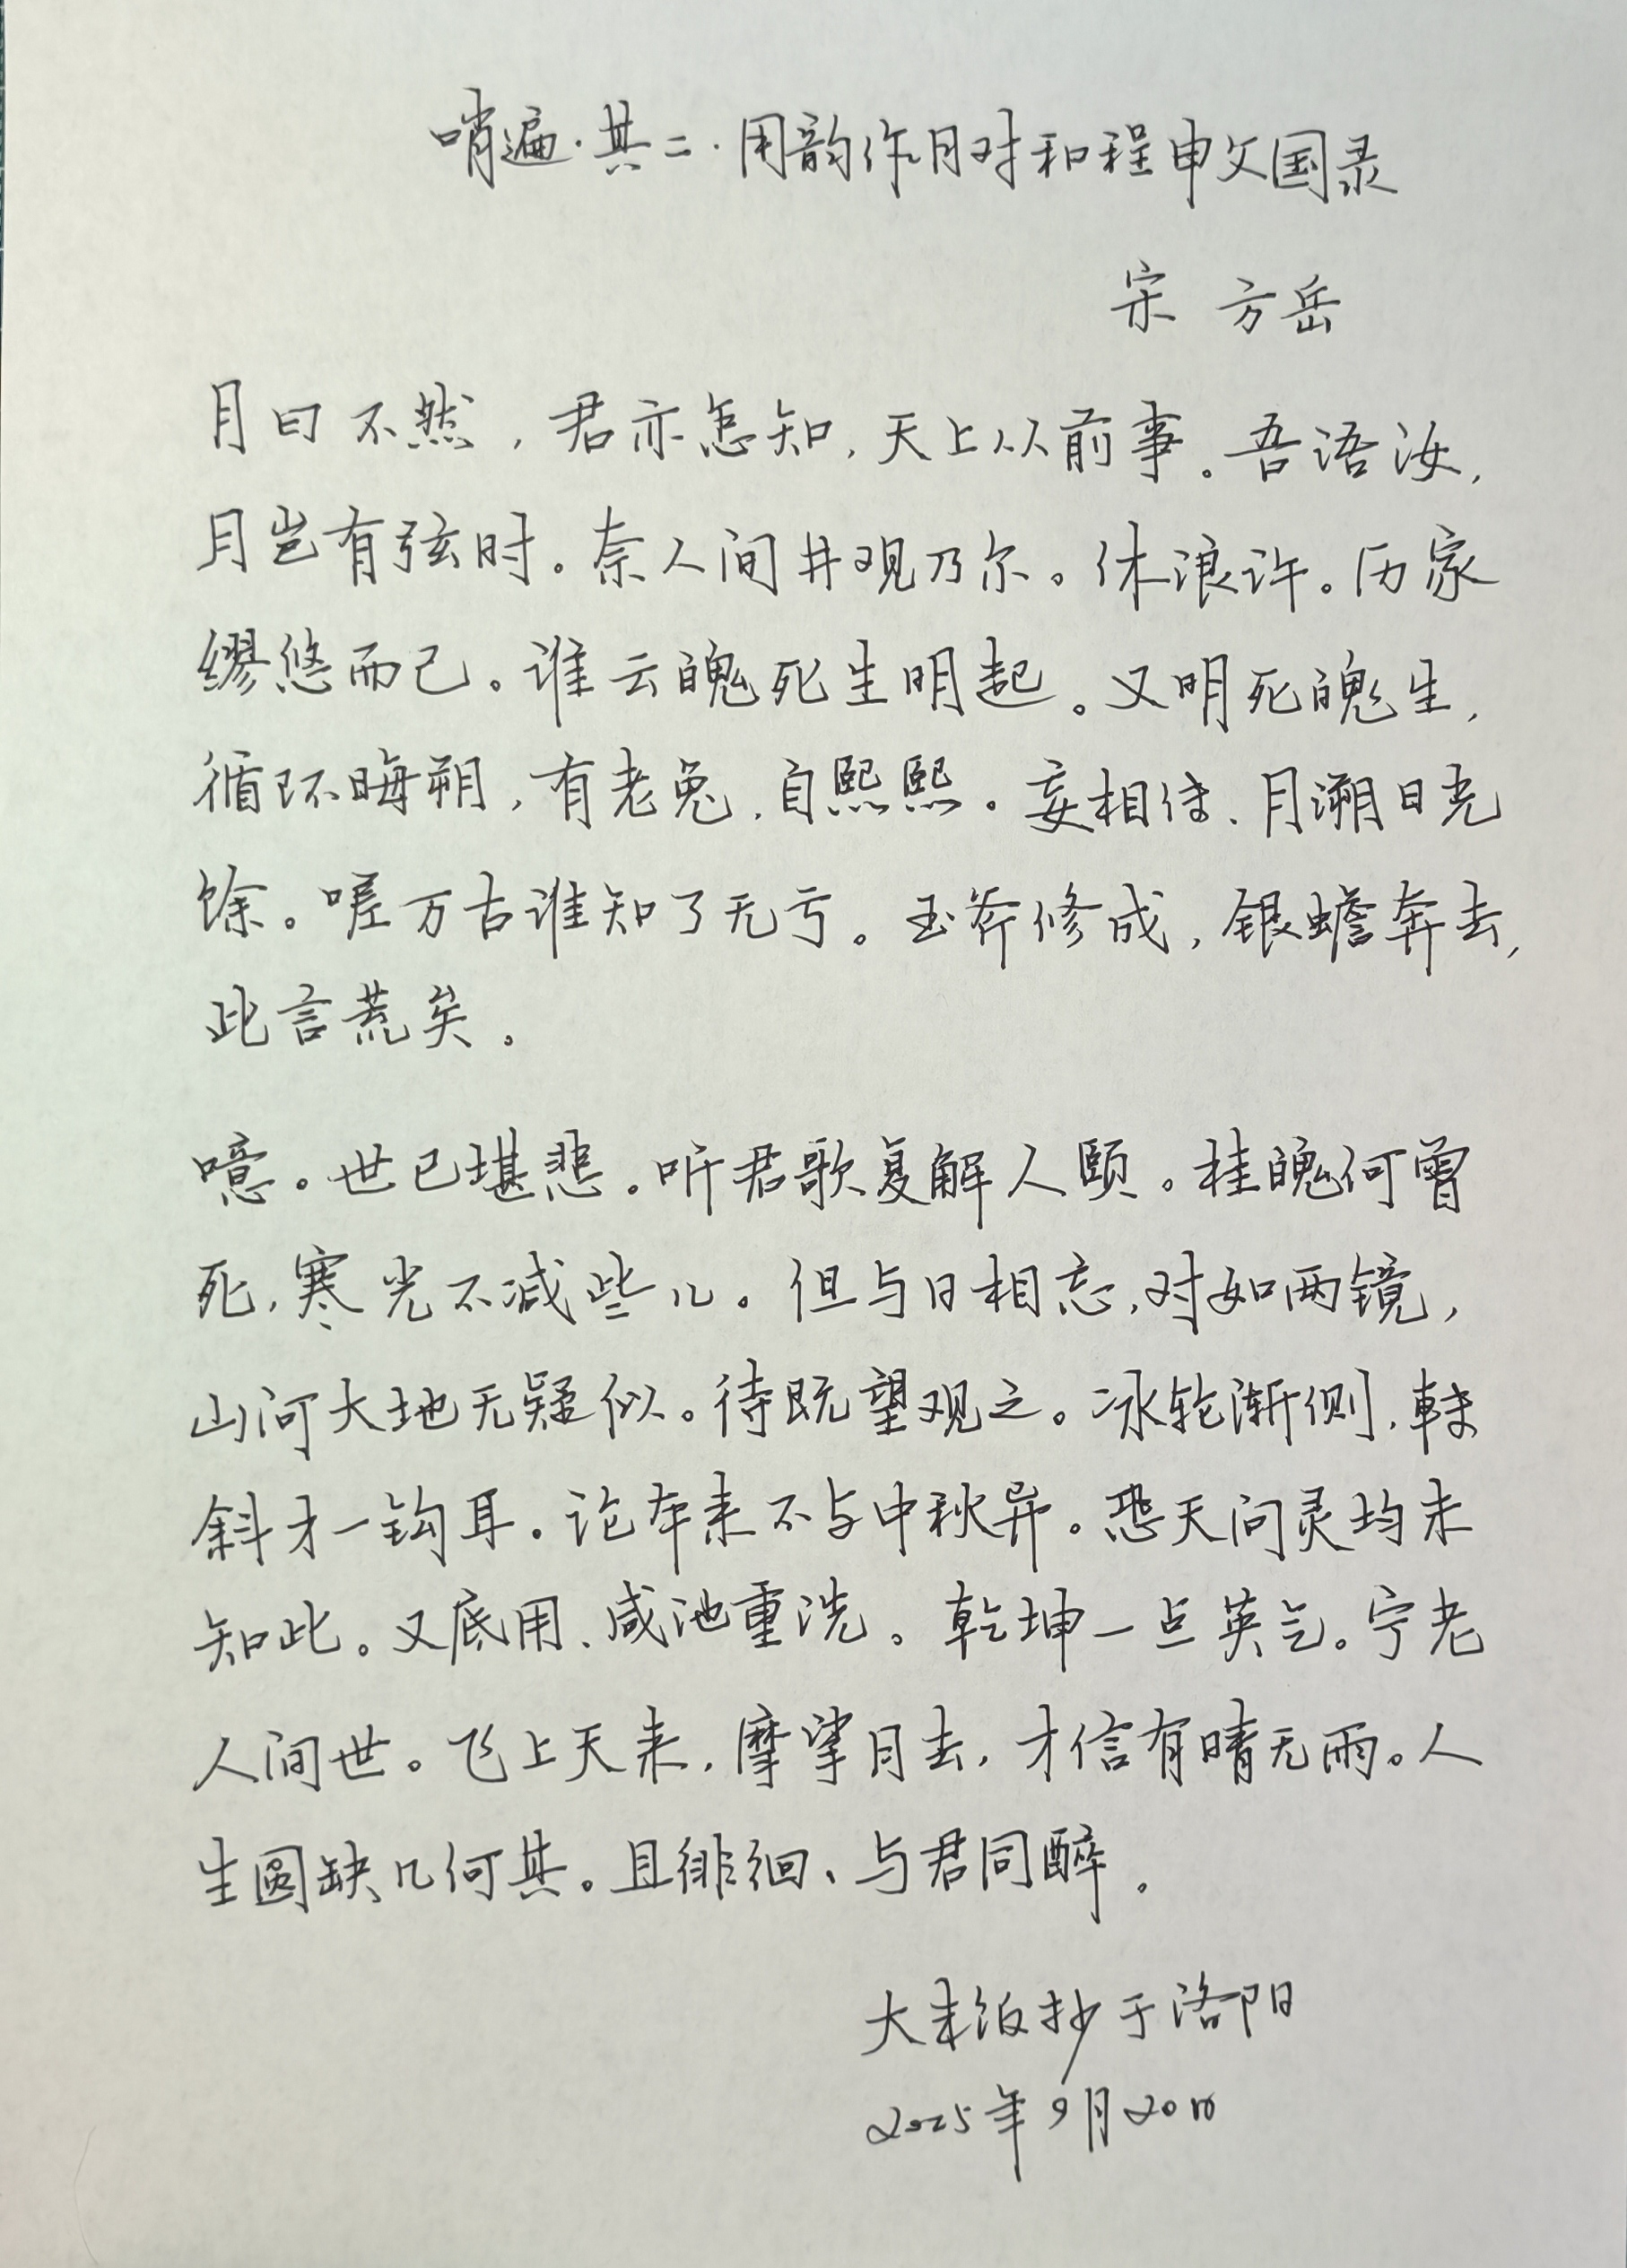 哨遍·其二·用韵作月对和程申父国录
宋 方岳
月曰不然，君亦怎知，天上从前事。吾语汝，
月岂有弦时。奈人间井观乃尔。休浪许。历家
缪悠而已。谁云魄死生明起。又明死魄生，
循环晦朔，有老兔，自熙熙。妄相传、月溯日光
馀。嗟万古谁知了无亏。玉斧修成，银蟾奔去，
此言荒矣。
噫。世已堪悲。听君歌复解人颐。桂魄何曾
死，寒光不减些儿。但与日相忘，对如两镜，
山河大地无疑似。待既望观之。冰轮渐侧，转
斜才一钩耳。论本来不与中秋异。恐天问灵均未
知此。又底用、咸池重洗。乾坤一点英气。宁老
人间世。飞上天来，摩挲月去，才信有晴无雨。人
生圆缺几何其。且徘徊、与君同醉。
大来泊抄于洛阳
2025年9月20日